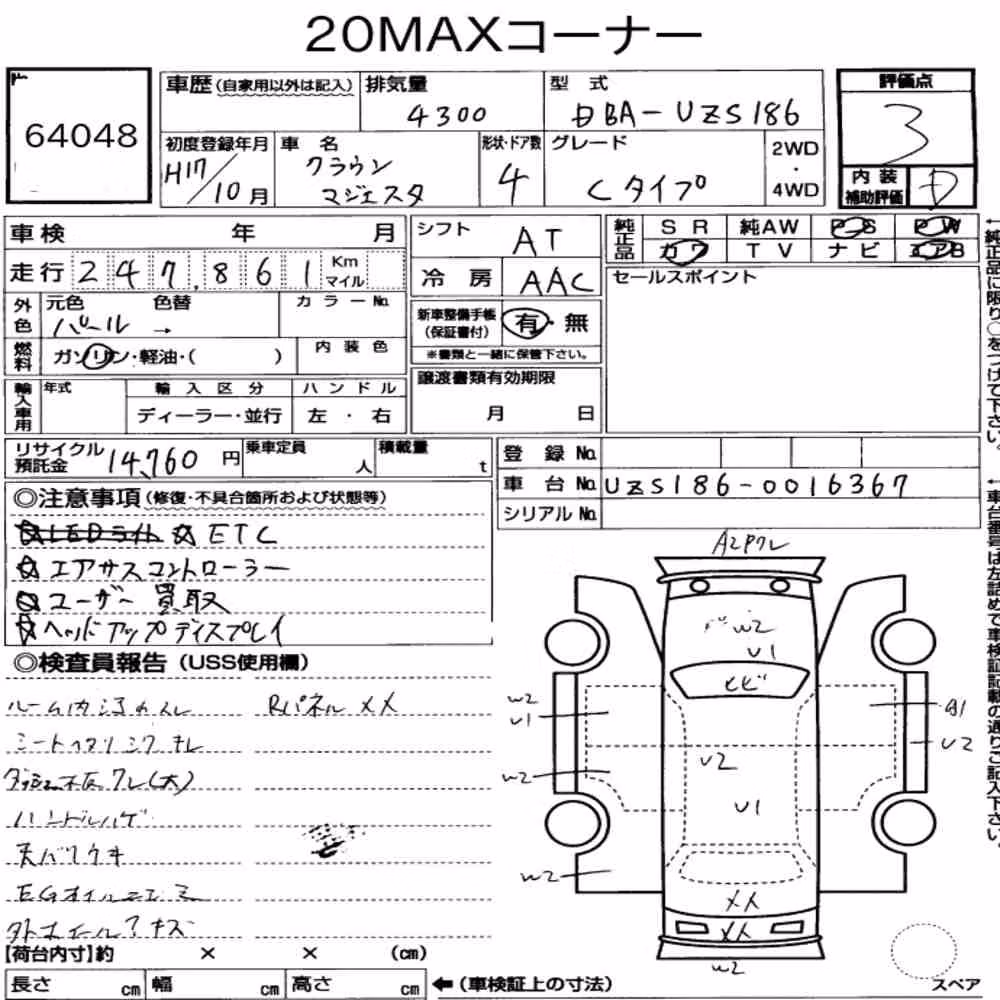 20MAXコーナー
64048
車歴(自家用以外は記入)
排気量
4300
型 式
DBA-UZS186
評価点
3
内装補助評価
D
初度登録年月
H17/10月
車名
クラウン
マジェスタ
形状・ドア数
4
グレード
Cタイプ
2WD・4WD
車検 年 月
走行 247,861 Km マイル
外色
元色 色替
パール →
カラーNo.
燃料
ガソリン・軽油・( )
内装色
輸入車用
年式
輸入区分
ディーラー・並行
ハンドル
左・右
シフト
AT
冷房
AAC
新車整備手帳
(保証書付)
有・無
※書類と一緒に保管下さい。
譲渡書類有効期限
月 日
純正品
SR 純AW PS PW
カワ TV ナビ エアB
セールスポイント
←純正品に限り○をつけて下さい。
リサイクル預託金
14,760円
乗車定員 人
積載量 t
登録No.
車台No. UZS186-0016367
シリアルNo.
←車台番号は左詰めで車検証記載の通りご記入下さい。
◎注意事項(修復・不具合箇所および状態等)
☆LEDライト ☆ETC
☆エアサスコントローラー
☆ユーザー買取
☆ヘッドアップディスプレイ
◎検査員報告(USS使用欄)
Rパネルメメ
ハンドルハゲ
EGオイルニジミ
A2Pワレ
W2
U1
ヒビ
W2
U1
W2
W2
A1
U2
U2
U1
メメ
メメ
W2
【荷台内寸】約 × × (cm)
長さ cm 幅 cm 高さ cm ←(車検証上の寸法)
スペア